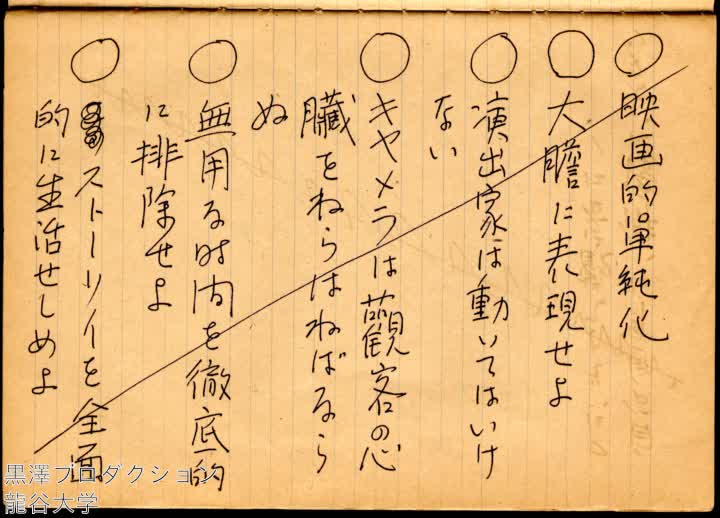 ○映画的単純化
○大膽に表現せよ
○演出家は動いてはいけ
ない
○キヤメラは観客の心
臓をねらはねばなら
ぬ
○無用な時間を徹底的
に排除せよ
○ストーリイを全面
的に生活せしめよ
黒澤プロダクション
龍谷大学